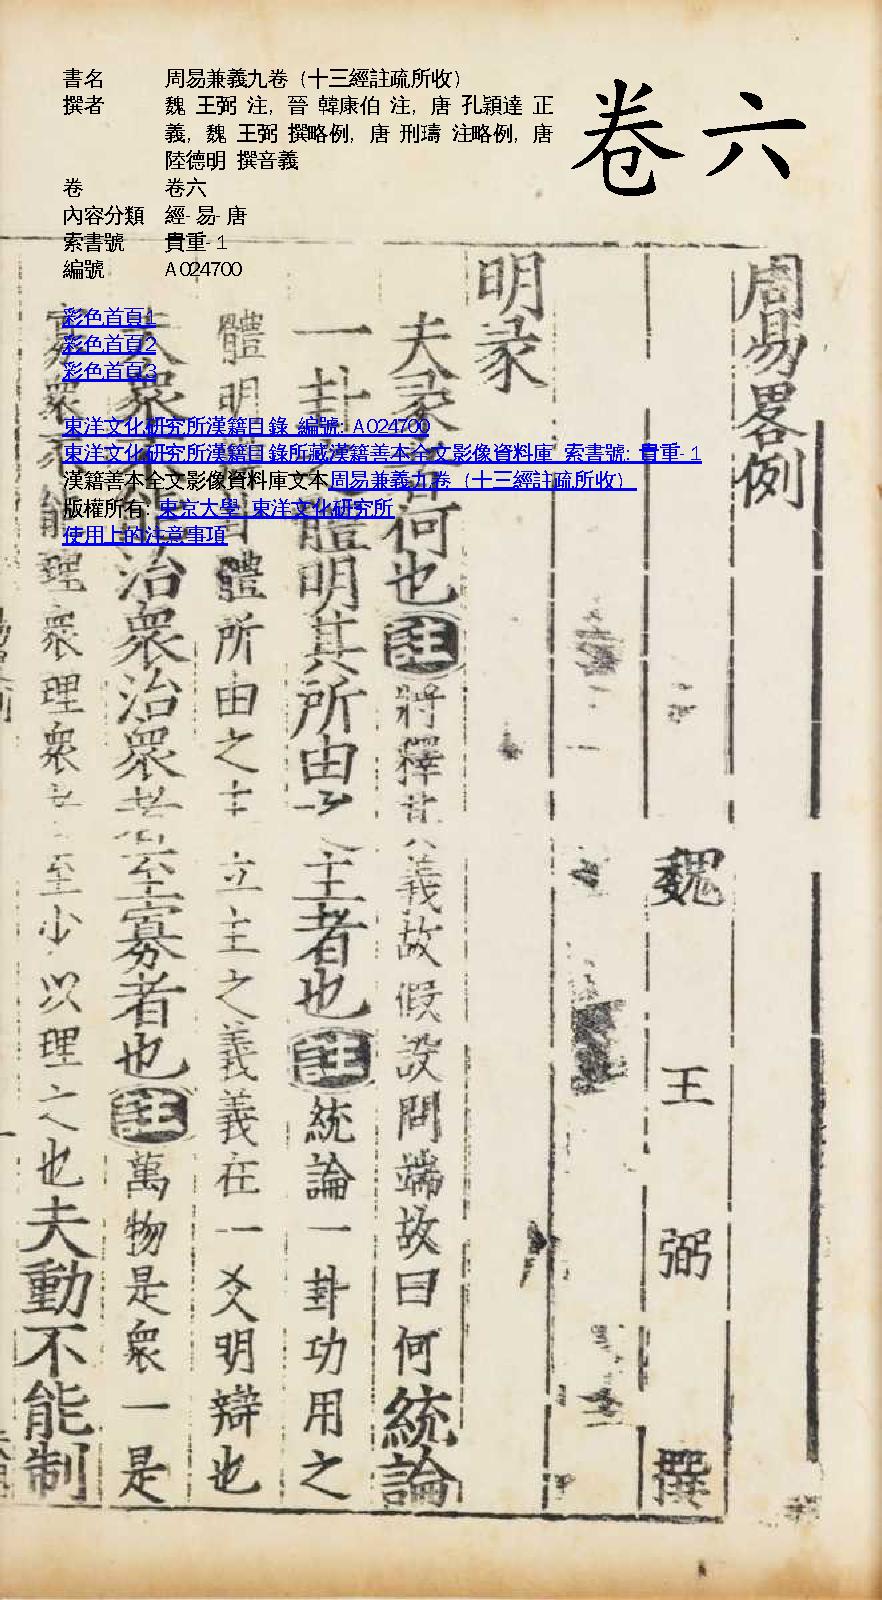 書名 周易兼義九卷 (十三經註疏所收)
撰者 魏 王弼 注, 晉 韓康伯 注, 唐 孔穎達 正
義, 魏 王弼 撰略例, 唐 刑璹 注略例, 唐
陸德明 撰音義
卷 卷六
內容分類 經-易-唐
索書號 貴重-1
編號 A024700
卷六
彩色首頁1
彩色首頁2
彩色首頁3
東洋文化研究所漢籍目錄 編號: A024700
東洋文化研究所漢籍目錄所藏漢籍善本全文影像資料庫 索書號: 貴重-1
漢籍善本全文影像資料庫文本周易兼義九卷 (十三經註疏所收)
版權所有: 東京大學 東洋文化研究所
使用上的注意事項
周易畧例
魏 王 弼 撰
明彖
夫彖者何也註將釋其義故假設問端故曰何統論
一卦之體明其所由之主者也註統論一卦功用之
體明體所由之主立主之義義在一爻明辯也
夫衆不能治衆治衆者至寡者也註萬物是衆一是
衆不能理衆理衆者至少以理之也夫動不能制